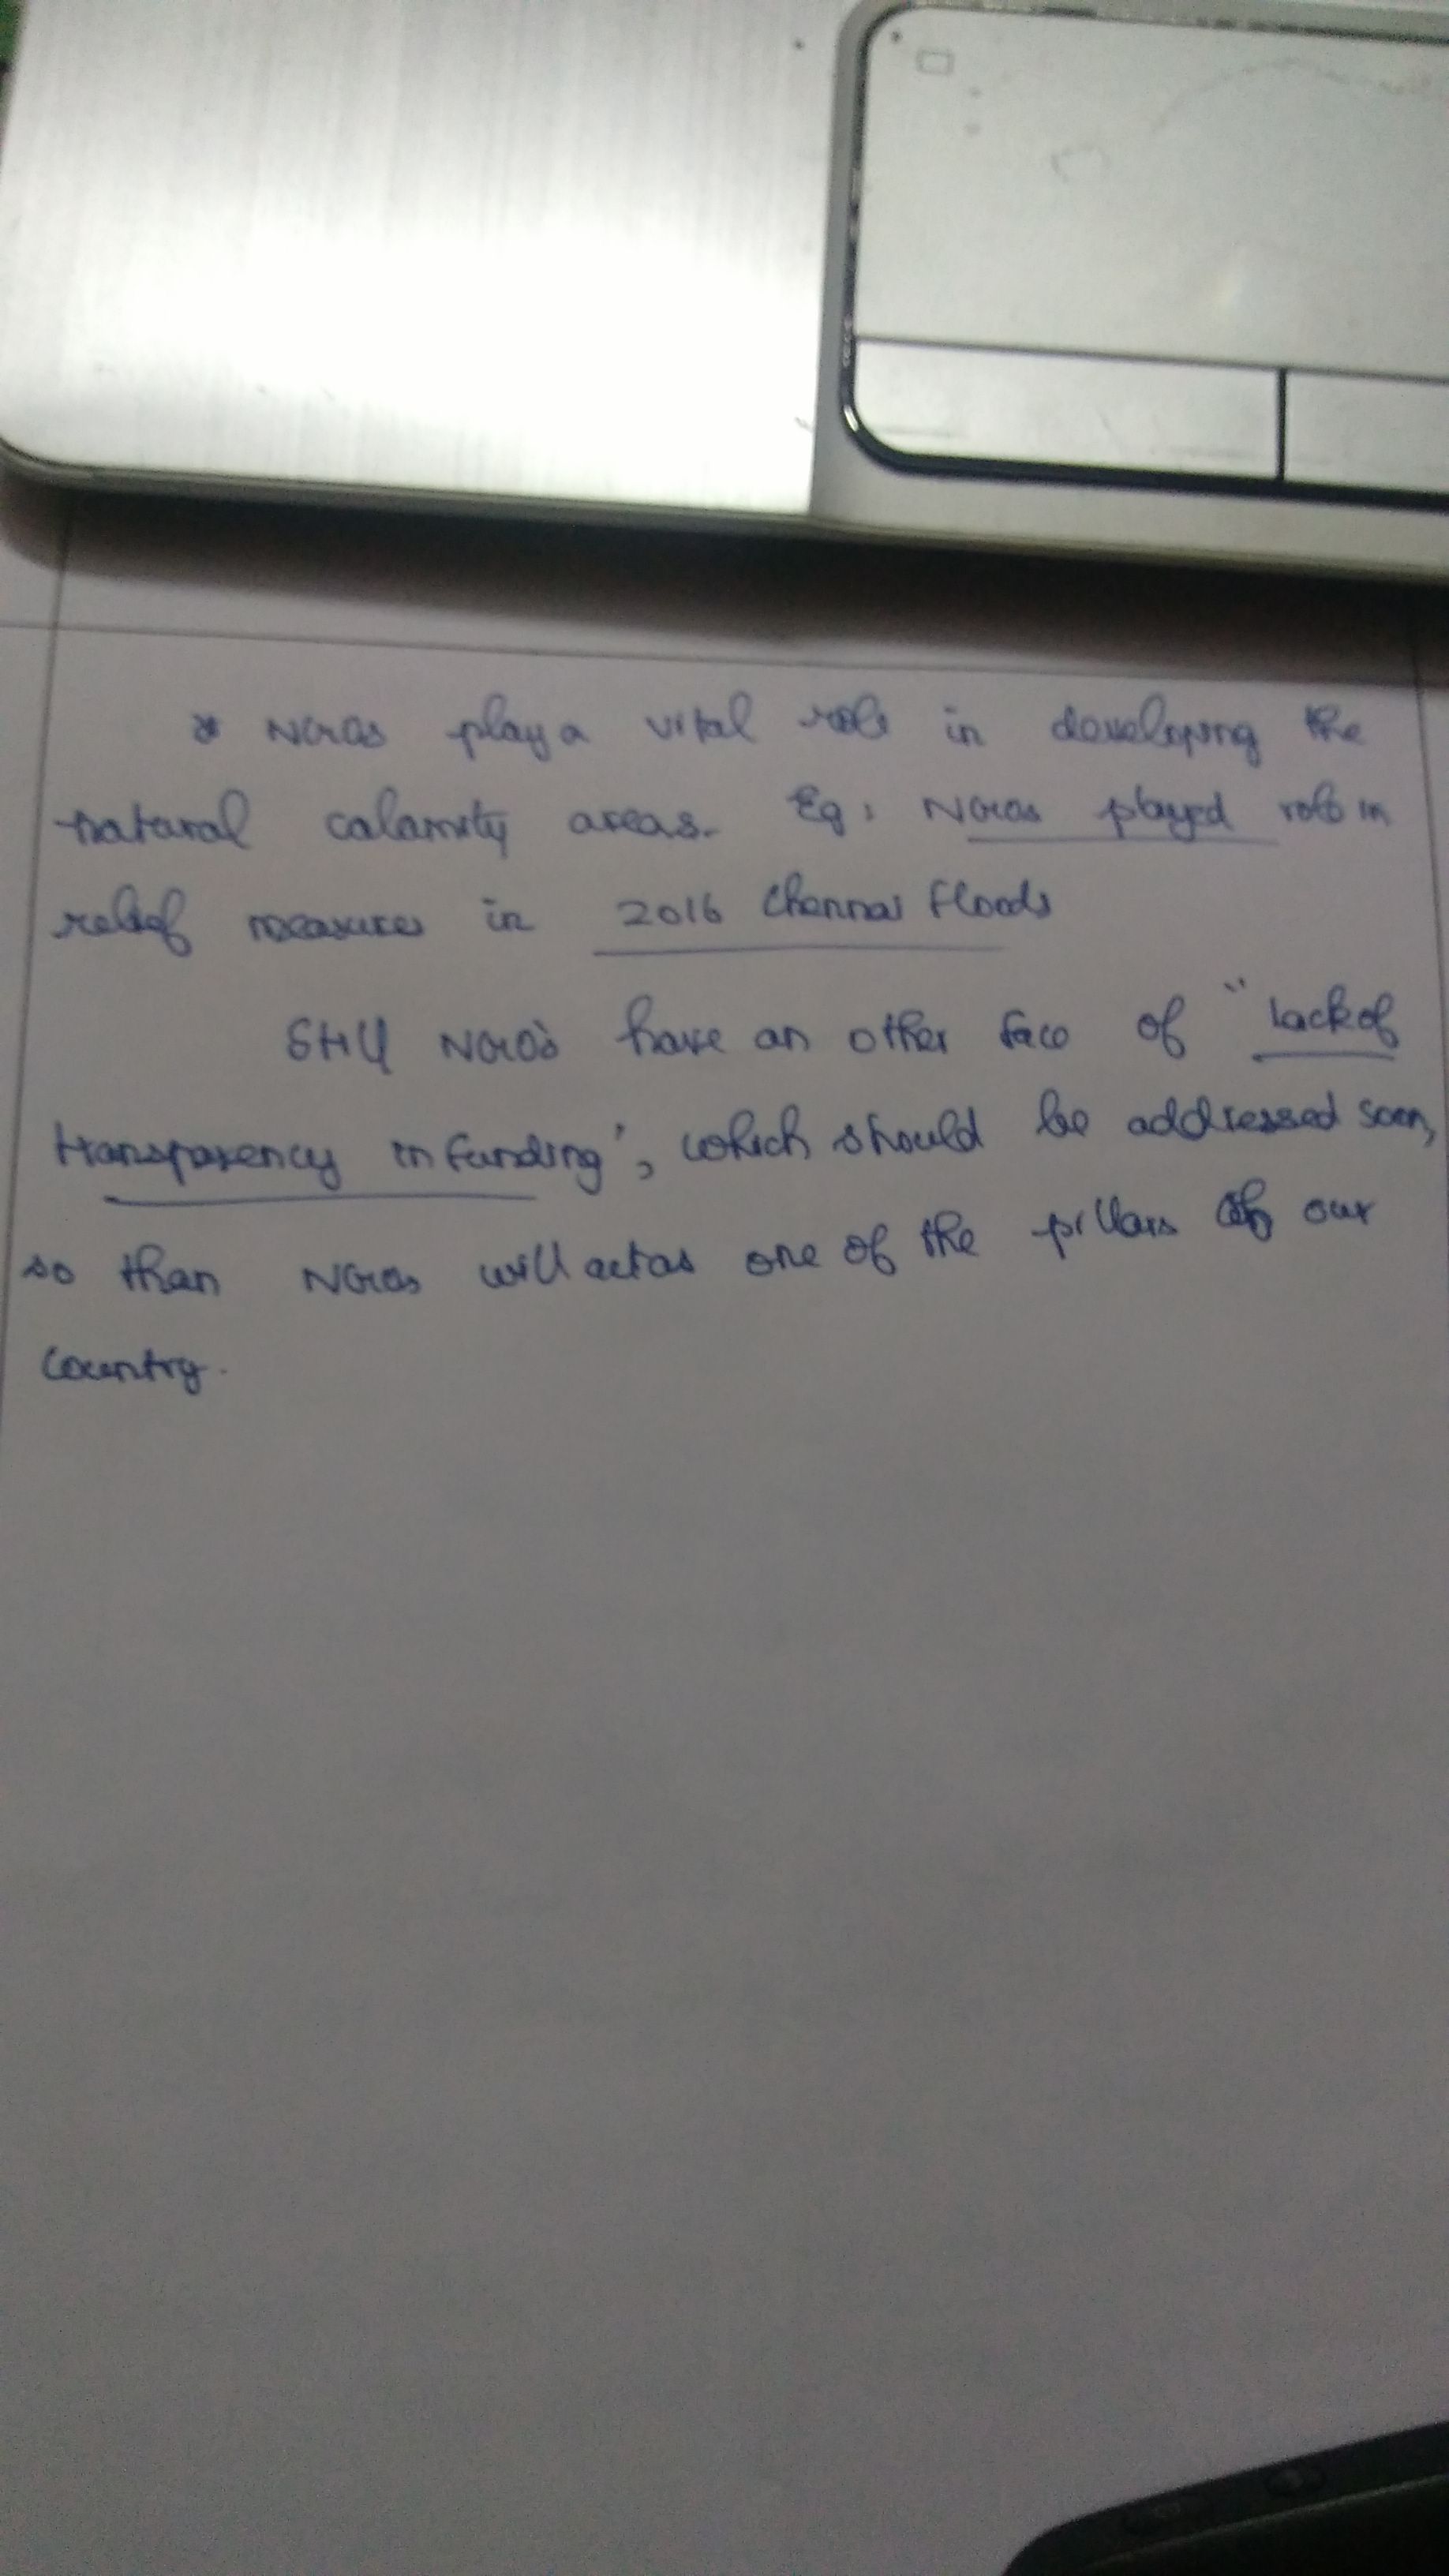 * NGOs play a vital role in developing the
natural calamity areas. Eg: NGOs played role in
relief measures in 2016 Chennai floods
Still NGO's have an other face of "lack of
transparency in funding", which should be addressed soon,
so than NGOs will act as one of the pillars of our
country.